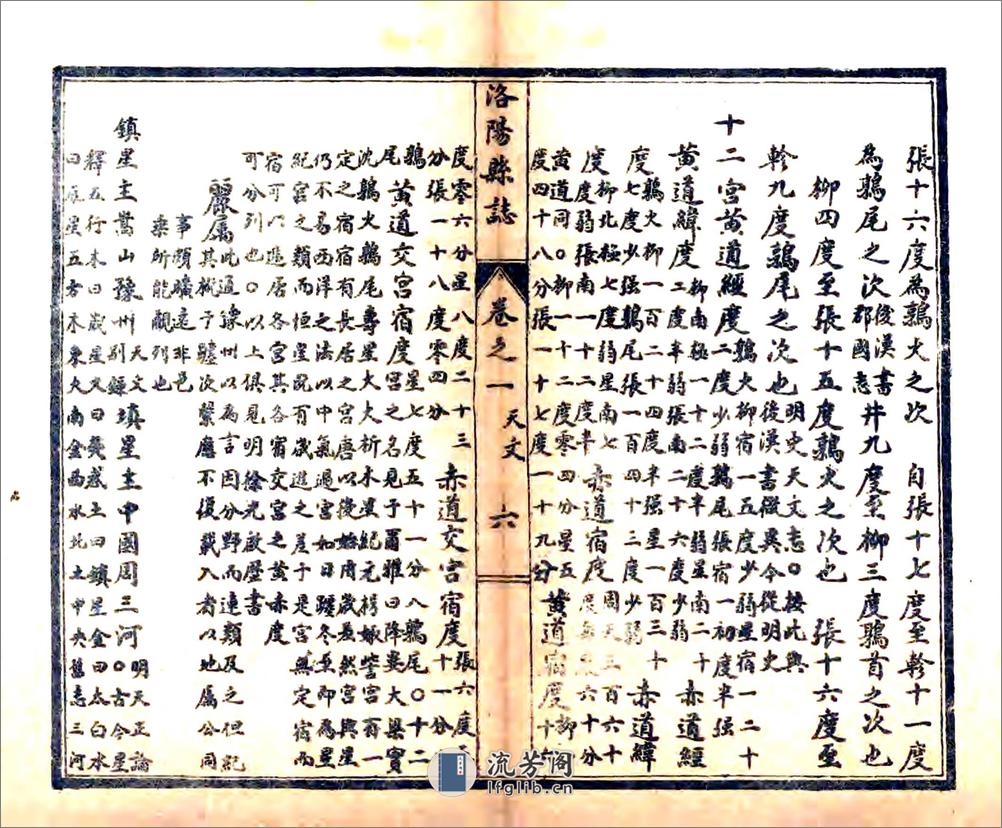 張十六度為鶉火之次　自張十七度至軫十一度
為鶉尾之次後漢書郡國志井九度至柳三度鶉首之次也
柳四度至張十五度鶉火之次也　張十六度至
軫九度鶉尾之次也明史天文志○按此與後漢書微異今從明史
十二宮黃道經度鶉火柳宿一五度少弱星宿一二十二度少弱鶉尾張宿一初度半強
黃道緯度柳南極一十二度半弱星南二十二度半弱張南二十六度少弱　赤道經
度鶉火柳一百二十四度半强星一百三十七度少强鶉尾張一百四十三度少弱　赤道緯
度柳北極七度弱星南七度弱張南一十二度半　赤道宿度周天三百六十度每度六十分
黃道同○柳一十二度零四分星五度四十八分張一十七度一十九分　黃道宿度柳十六
洛陽縣誌　卷之一　天文　六
度零六分星八度二十三分張一十八度零四分　赤道交宮宿度張六度
十一分鶉尾○十二
黃道交宮宿度星七度五十一分
宮之名見于爾雅曰降婁大梁實沈鶉火鶉尾壽星大火析木星紀元枵娵訾宮有一
定之宿宿有長居之宮唐以後始用歲差然宮與星
仍不易西洋之法以中氣過宮如日躔冬至即為星
紀宮之類而恒星既有歲進之差于是宮無定宿而
宿可以遞居各宮其各宿交宮之黃赤度
可分列也○以上俱見明徐光啟歷書
麗屬此通豫州以為言因分野而連類及之但紀其概于驪次繫應不復載入者以地屬公同
事類曠遠非一邑乘所能觀列也
鎮星主嵩山豫州天文別錄　填星主中國周三河明天正論○古今星
釋五行木曰歲星火曰熒惑土曰鎮星金曰太白水
曰辰星五方木東火南金西水北土中央舊志三河
流芳阁
lfglib.cn